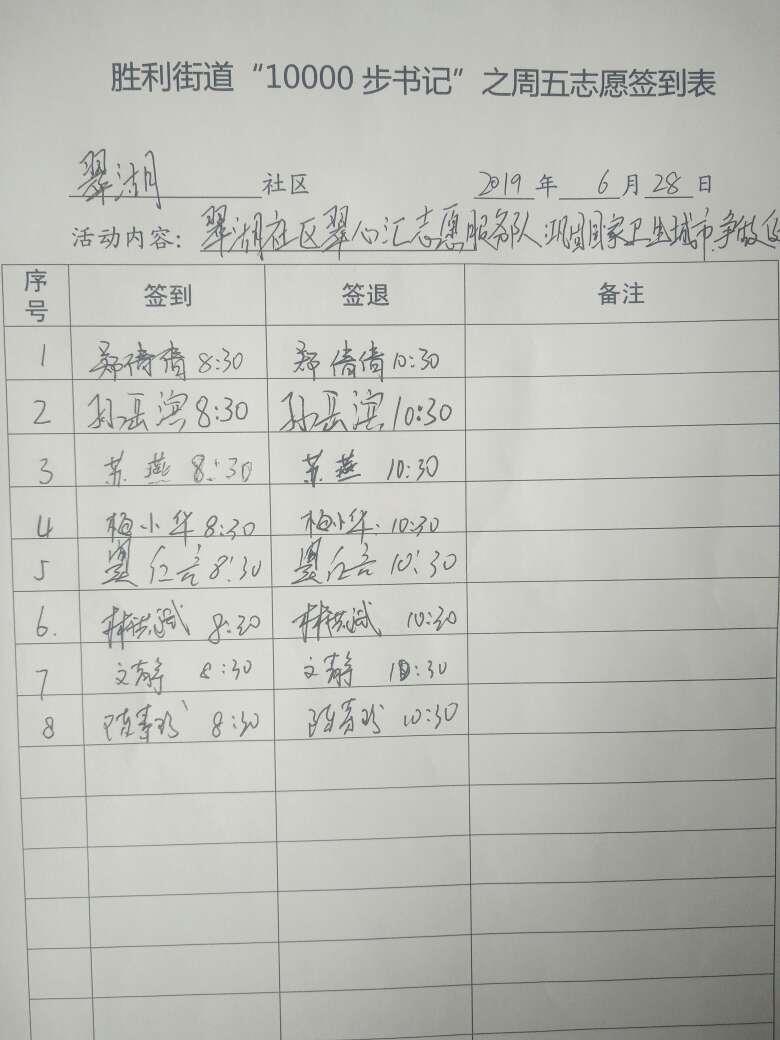 胜利街道“10000步书记”之周五志愿签到表
翠湖 社区 2019 年 6 月 28 日
活动内容：翠湖社区翠心汇志愿服务队:巩固国家卫生城市,争做
序号 签到 签退 备注
1 郑倩倩 8:30 郑倩倩 10:30
2 孙岳滨 8:30 孙岳滨 10:30
3 苏燕 8:30 苏燕 10:30
4 梅小华 8:30 梅小华 10:30
5 8:30 10:30
6. 林洪斌 8:30 林洪斌 10:30
7 文静 8:30 文静 10:30
8 陈秀珍 8:30 陈秀珍 10:30